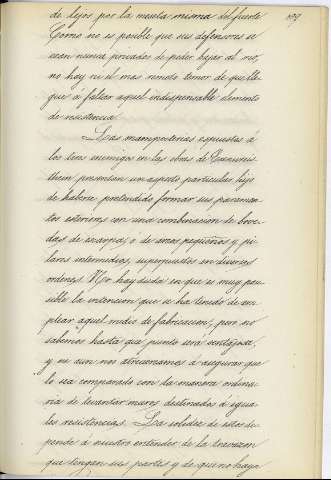 199
de lejos por la meseta misma del fuerte.
Como no es posible que sus defensores se
vean nunca privados de poder bajar al rio,
no hay ni el mas remoto temor de que lle
gue á faltar aquel indispensable elemento
de resistencia.
Las mamposterias espuestas á
los tiros enemigos en las obras de
thein presentan un aspecto particular hijo
de haberse pretendido formar sus paramen
tos esteriores con una combinacion de bove
das de escarpa, o de arcos pequeños y pi
lares intermedios, superpuestos en diversos
ordenes. No hay duda en que es muy pau
sible la intencion que se ha tenido de em
plear aquel medio de fabricacion; pero no
sabemos hasta qué punto será ventajosa,
y ni aun nos atreveriamos á asegurar que
lo sea comparado con la manera ordina
ria de levantar muros destinados á igua
les resistencias. La solidez de estos de
pende á nuestro entender de la travazon
que tengan sus partes y de que no haya